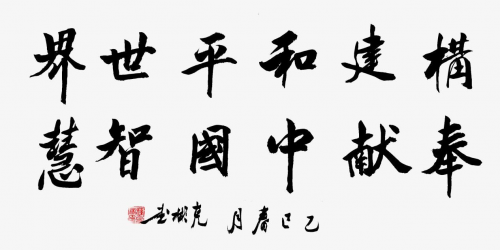 構建和平世界
奉献中國智慧
乙巳春月 克樹书